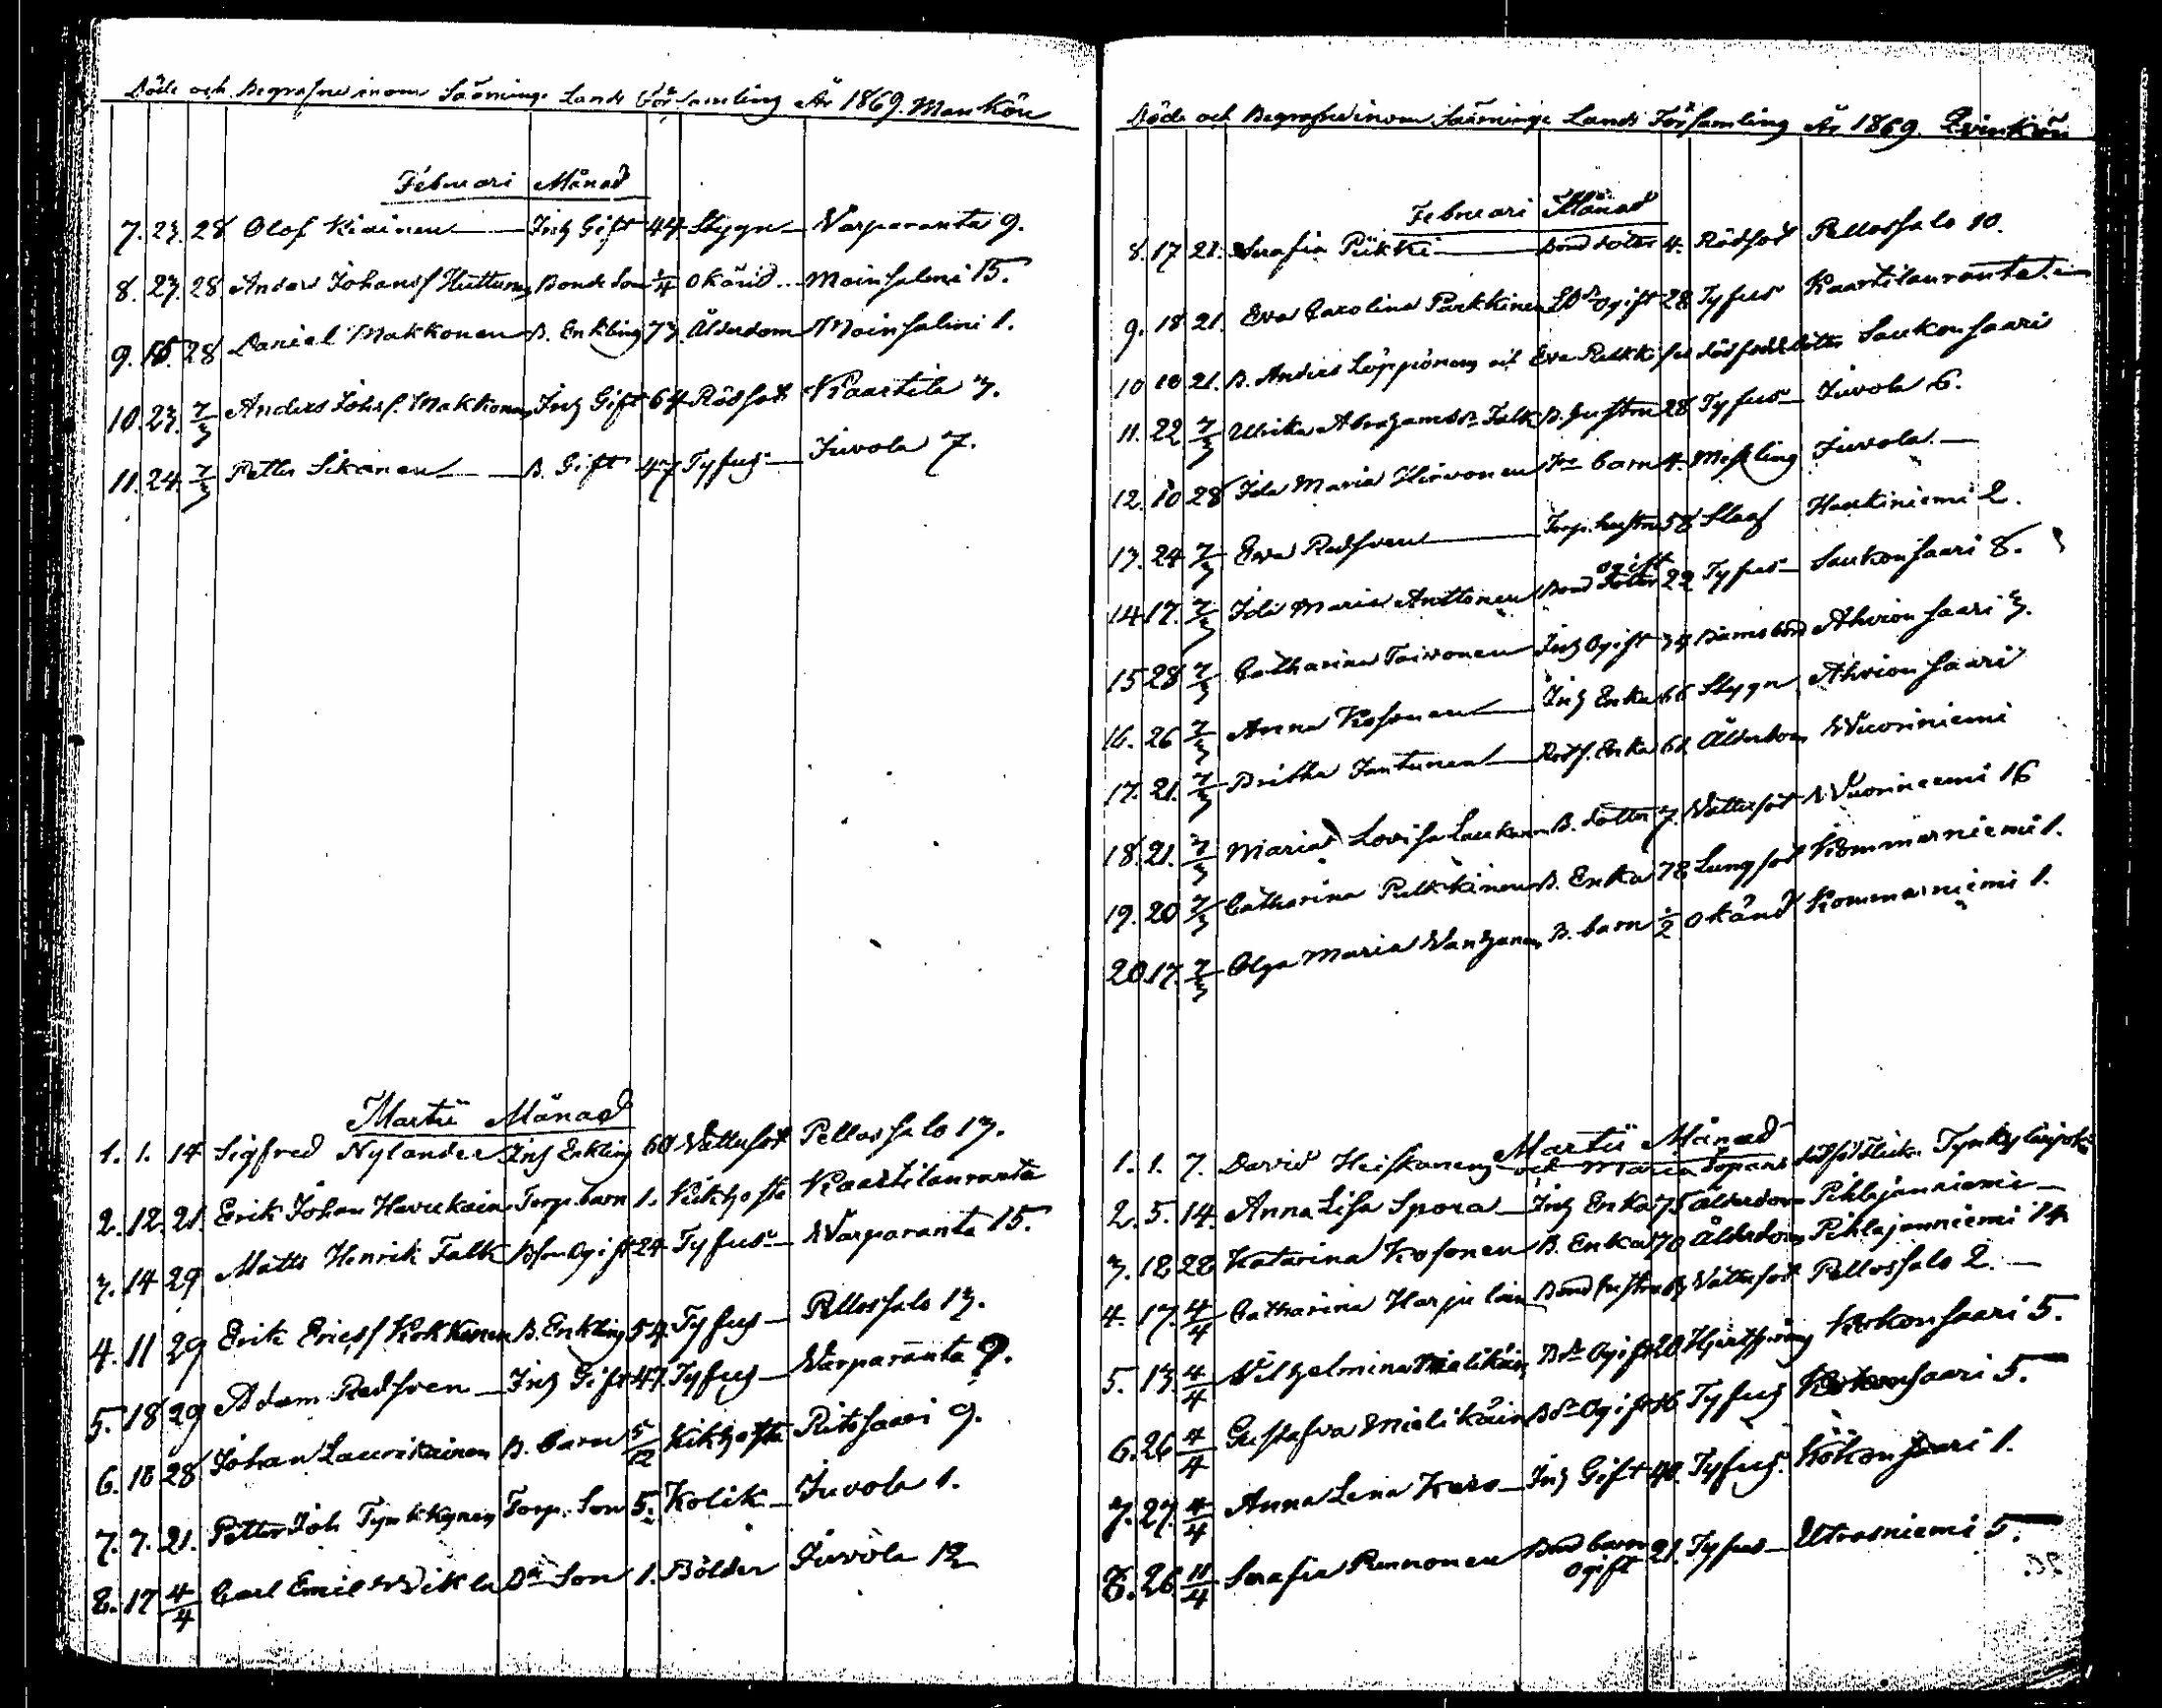 Döde och Begrafne inom Säminge Lands Församling År 1869. Mankön
Februari Månad
7. 23. 28 Olof Kiainen Inh Gift 44 Stygn Varparanta 9.
8. 27. 28 Anders Johansf Huttunen Bonde Son 1/4 Okänd Moinsalmi 15.
9. 15. 28 Daniel Makkonen B. Enkling 73. Ålderdom Moinsalmi 1.
10. 23. 7/3 Anders Johsf. Makkonen Inh Gift 64 Rödsot Kaartila 3.
11. 24. 7/3 Petter Sikanen B. Gift 47 Tyfus Juvola 7.
Martii Månad
1. 1. 14 Sigfred Nylander Inh Enkling 60 Vattusot Pellossalo 13.
2. 12. 21. Erik Johan Havukain Torp. barn 1. Kikhosta Kaartilanranta
3. 14 29 Matts Henrik Falk Bson Ogift 24 Tyfus Varparanta 15.
4. 11 29 Erik Ericsf Kokkonen B. Enkling 54. Tyfus Pellossalo 13.
5. 18 29 Adam Redsven Inh Gift 47. Tyfus Varparanta 9.
6. 18 28 Johan Laurikainen B. barn 5/12 Kikhosta Pitosaari 9.
7. 7. 21. Petter Joh Tynkkynen Torp. Son 5. Kolik Juvola 1.
8. 17 4/4 Carl Emil Wikla Dn Son 1. Bölder Juvola 12
Döde och Begrafne inom Säminge Lands Församling År 1869. Qvinkön
Februari Månad
8. 17 21. Serafia Piikki Bond doter 4. Rödsot Pellossalo 10.
9. 18 21. Eva Carolina Parkkinen Ogift 28 Tyfus Kaartilanranta
10 10 21. B. Anders Löppönen och Eva Pulkki dödfödd dotter Saukonsaari
11. 22 7/3 Ulrika Abrahamsdr Falk B. hustru 28 Tyfus Juvola 6.
12. 10 28 Ida Maria Hirvonen barn 4. Mässling Juvola
13. 24 7/3 Eva Redsven Torp. hustru 58 Slag Haukiniemi 2.
14 17. 7/3 Ida Maria Anttonen Bond doter ogift 22 Tyfus Saukonsaari 8.
15 28 7/3 Catharina Toivonen Inh Ogift 34 Barnsbörd Ahvionsaari 3.
16. 26 7/3 Anna Kosonen Inh Enka 66 Stygn Ahvionsaari
17. 21. 7/3 Britha Jantunen Rotf. Enka 62 Ålderdom Vuoriniemi
18. 21. 7/3 Maria Lovisa Laukanen B. dotter 7. Vattusot Vuoriniemi 16
19. 20 7/3 Catharina Pulkkinen B. Enka 78 Lungsot Kommerniemi 1.
20. 17. 7/3 Olga Maria Vanhanen B. barn 1/2 Okänd Kommerniemi 1.
Martii Månad
1. 1. 7. David Heiskanens och Maria dödfödd flicka
2. 5. 14. Anna Lisa Spora Inh Enka 75 Ålderdom Pihlajaniemi
3. 12 28 Katarina Kosonen B. Enka 70 Ålderdom Pihlajanniemi 14
4. 17. 4/4 Catharina Harjulain Bond hustru Vattusot Pellossalo 2.
5. 13. 4/4 Vilhelmina Mielikäin Bdr Ogift 20 Kokonsaari 5.
6. 26 4/4 Gustafva Mielikäin Bdr Ogift 16 Tyfus Kokonsaari 5.
7. 27. 4/4 Anna Lena Karo Inh Gift 40. Tyfus. Kokonsaari 1.
8. 26 11/4 Serafia Rennonen Bond barn ogift 21. Tyfus Utrasniemi 5.